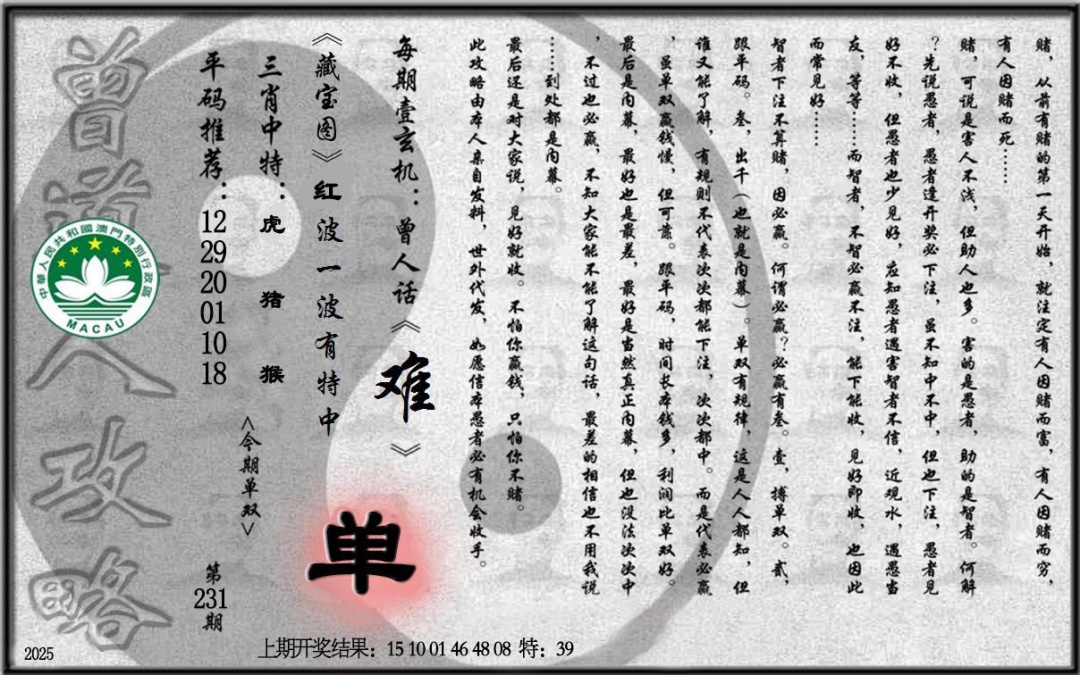 赌，从前有赌的第一天开始，就注定有人因赌而富，有人因赌而穷，
有人因赌而死……
赌，可说是害人不浅，但助人也多。害的是愚者，助的是智者。何解
？先说愚者，愚者逢开奖必下注，虽不知中不中，但也下注，愚者见
好不收，但愚者也少见好，应知愚者遇害智者不信，近观水，遇愚当
友，等等……而智者，不智必赢不注，能下能收，见好即收，也因此
而常见好……
智者下注不算赌，因必赢。何谓必赢？必赢有叁。壹，搏单双。贰，
跟平码。叁，出千（也就是内幕）。单双有规律，这是人人都知，但
谁又能了解，有规则不代表次次都能下注，次次都中。而是代表必赢
，虽单双赢钱慢，但可靠。跟平码，时间长本钱多，利润比单双好。
最后是内幕，最好也是最差，最好是当然真正内幕，但也没法次次中
，不过也必赢，不知大家能不能了解这句话，最差的相信也不用我说
……到处都是内幕。
最后还是对大家说，见好就收。不怕你赢钱，只怕你不赌。
此攻略由本人亲自发料，世外代发，如愿信本愚者必有机会收手。
每期壹玄机：曾人话《难》
《藏宝图》红波一波有特中
单
三肖中特：虎 猪 猴
<今期单双>
平码推荐：12 29 20 01 10 18
第231期
曾道人攻略
中華人民共和國澳門特別行政區
MACAU
2025
上期开奖结果：15 10 01 46 48 08 特：39